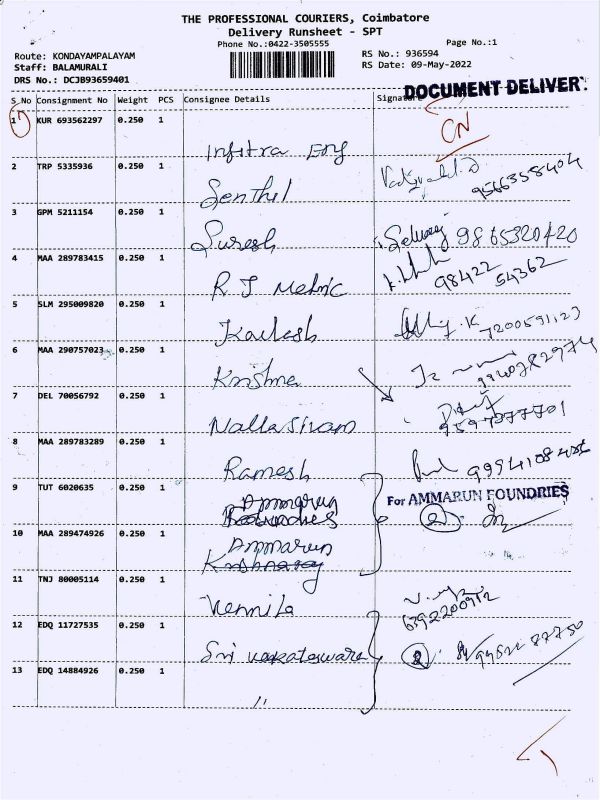 THE PROFESSIONAL COURIERS, Coimbatore
Delivery Runsheet - SPT
Phone No.:0422-3505555
Page No.:1
Route: KONDAYAMPALAYAM
Staff: BALAMURALI
DRS No.: DCJB93659401
RS No.: 936594
RS Date: 09-May-2022
DOCUMENT DELIVER
S.No Consignment No Weight PCS Consignee Details Signature
1 KUR 693562297 0.250 1 Infitra Eng ON
2 TRP 5335936 0.250 1 Senthil 9566358404
3 GPM 5211154 0.250 1 Suresh Selvaraj 9865320420
4 MAA 289783415 0.250 1 R J Metric 98422 54362
5 SLM 295009820 0.250 1 Kailash 7200591123
6 MAA 290757023 0.250 1 Krishna 9940782974
7 DEL 70056792 0.250 1 Nallasivam 9597377701
8 MAA 289783289 0.250 1 Ramesh
9 TUT 6020635 0.250 1 Ammarun
For AMMARUN FOUNDRIES
10 MAA 289474926 0.250 1 Ammarun 2
11 TNJ 80005114 0.250 1 Vennila 6392200912
12 EDQ 11727535 0.250 1 Sri vekateswara 2
13 EDQ 14884926 0.250 1 "